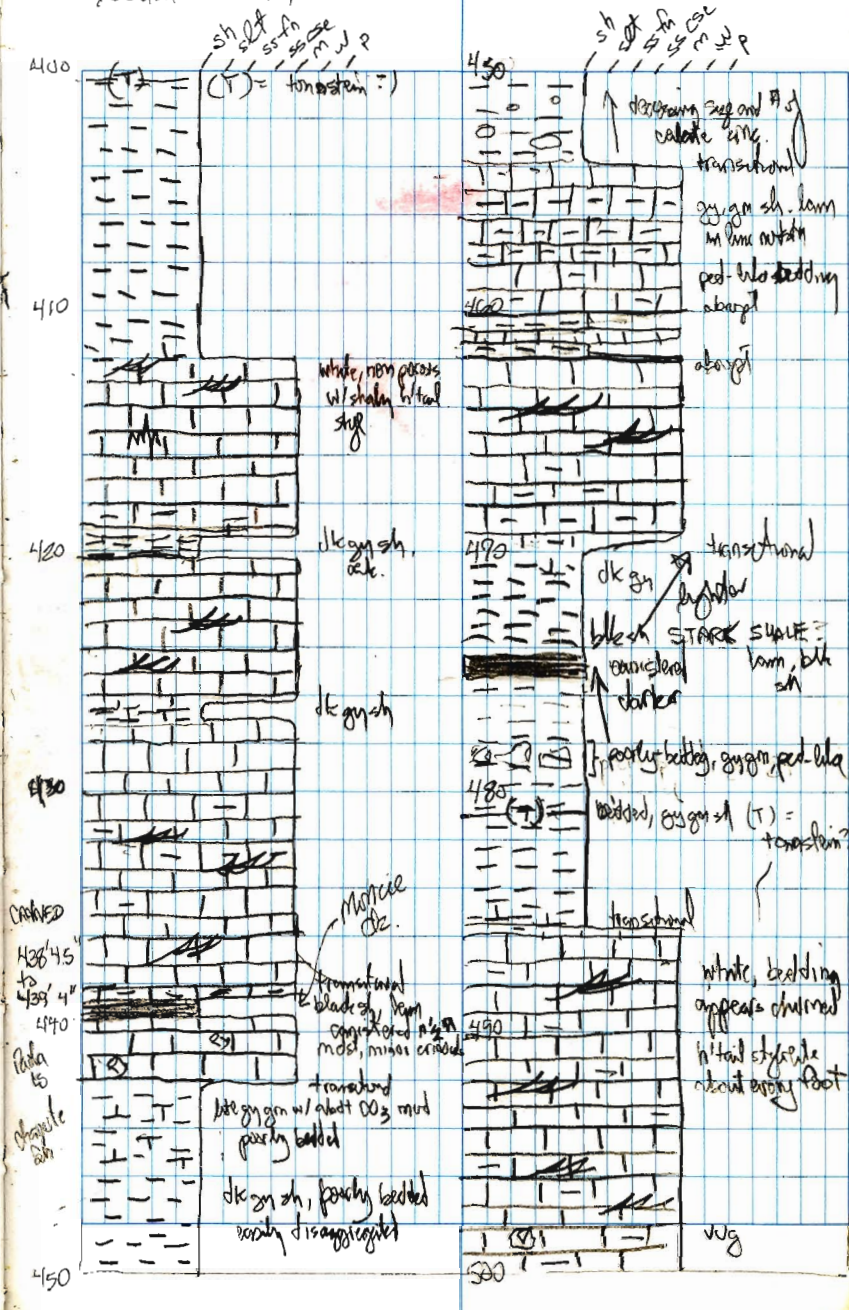 sh slt ss fn ss cse m w p
400
(T)
(T) = tonstein :)
410
white, non porous
w/ shaly h'tail
styl
420
dk gy sh,
dk gy sh
430
CANNED
438'4.5"
to
439'4"
440
Muncie
Ck.
transitional
black sh, lam
canistered
most, minor crinoids
Paola
ls
transitional
lite gy grn w/ abdt CO3 mud
poorly bedded
Chanute
sh
dk gy sh, poorly bedded
easily disaggregated
450
sh slt ss fn ss cse m w p
450
decreasing size and # of
transitional
gy, grn sh. lam
in lime mdstn
ped-like bedding
460
abrupt
abrupt
470
transitional
dk gy
lighter
blk sh STARK SHALE?
canistered
lam, blk
sh
darker
poorly-bedded, gy grn, ped-like
480
(T)
bedded, gy grn sh (T) =
tonstein?
transitional
white, bedding
appears churned
490
h'tail stylolite
about every foot
vug
500